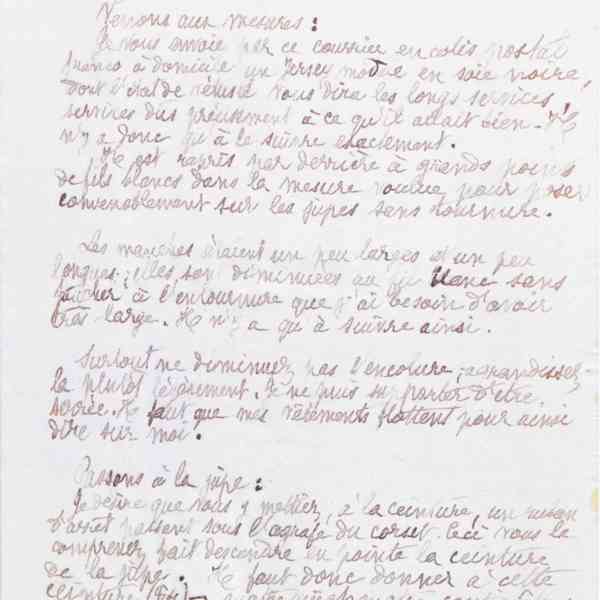 Venons aux mesures :
Je vous envoie par ce courrier en colis postal
franco à domicile un Jersey modèle en soie noire,
dont l'état de vétusté vous dira les longs services,
services dus précisément à ce qu'il allait bien - Il
n'y a donc qu'à le suivre exactement.
Il est repris par derrière à grands points
de fils blancs dans la mesure voulue pour poser
convenablement sur les jupes sans tournure.
Les manches étaient un peu larges et un peu
longues ; elles son diminuées au fil blanc sans
toucher à l'entournure que j'ai besoin d'avoir
très large. Il n'y a qu'à suivre ainsi.
Surtout ne diminuez pas l'encolure ; agrandissez-
la plutôt légèrement. Je ne puis supporter d'être
serrée. Il faut que mes vêtements flottent pour ainsi
dire sur moi.
Passons à la jupe :
Je désire que vous y mettiez, à la ceinture, un ruban
d'arrêt passant sous l'agrafe du corset. Ceci vous le
comprenez fait descendre en pointe la ceinture
de la jupe. Il faut donc donner à cette
ceinture